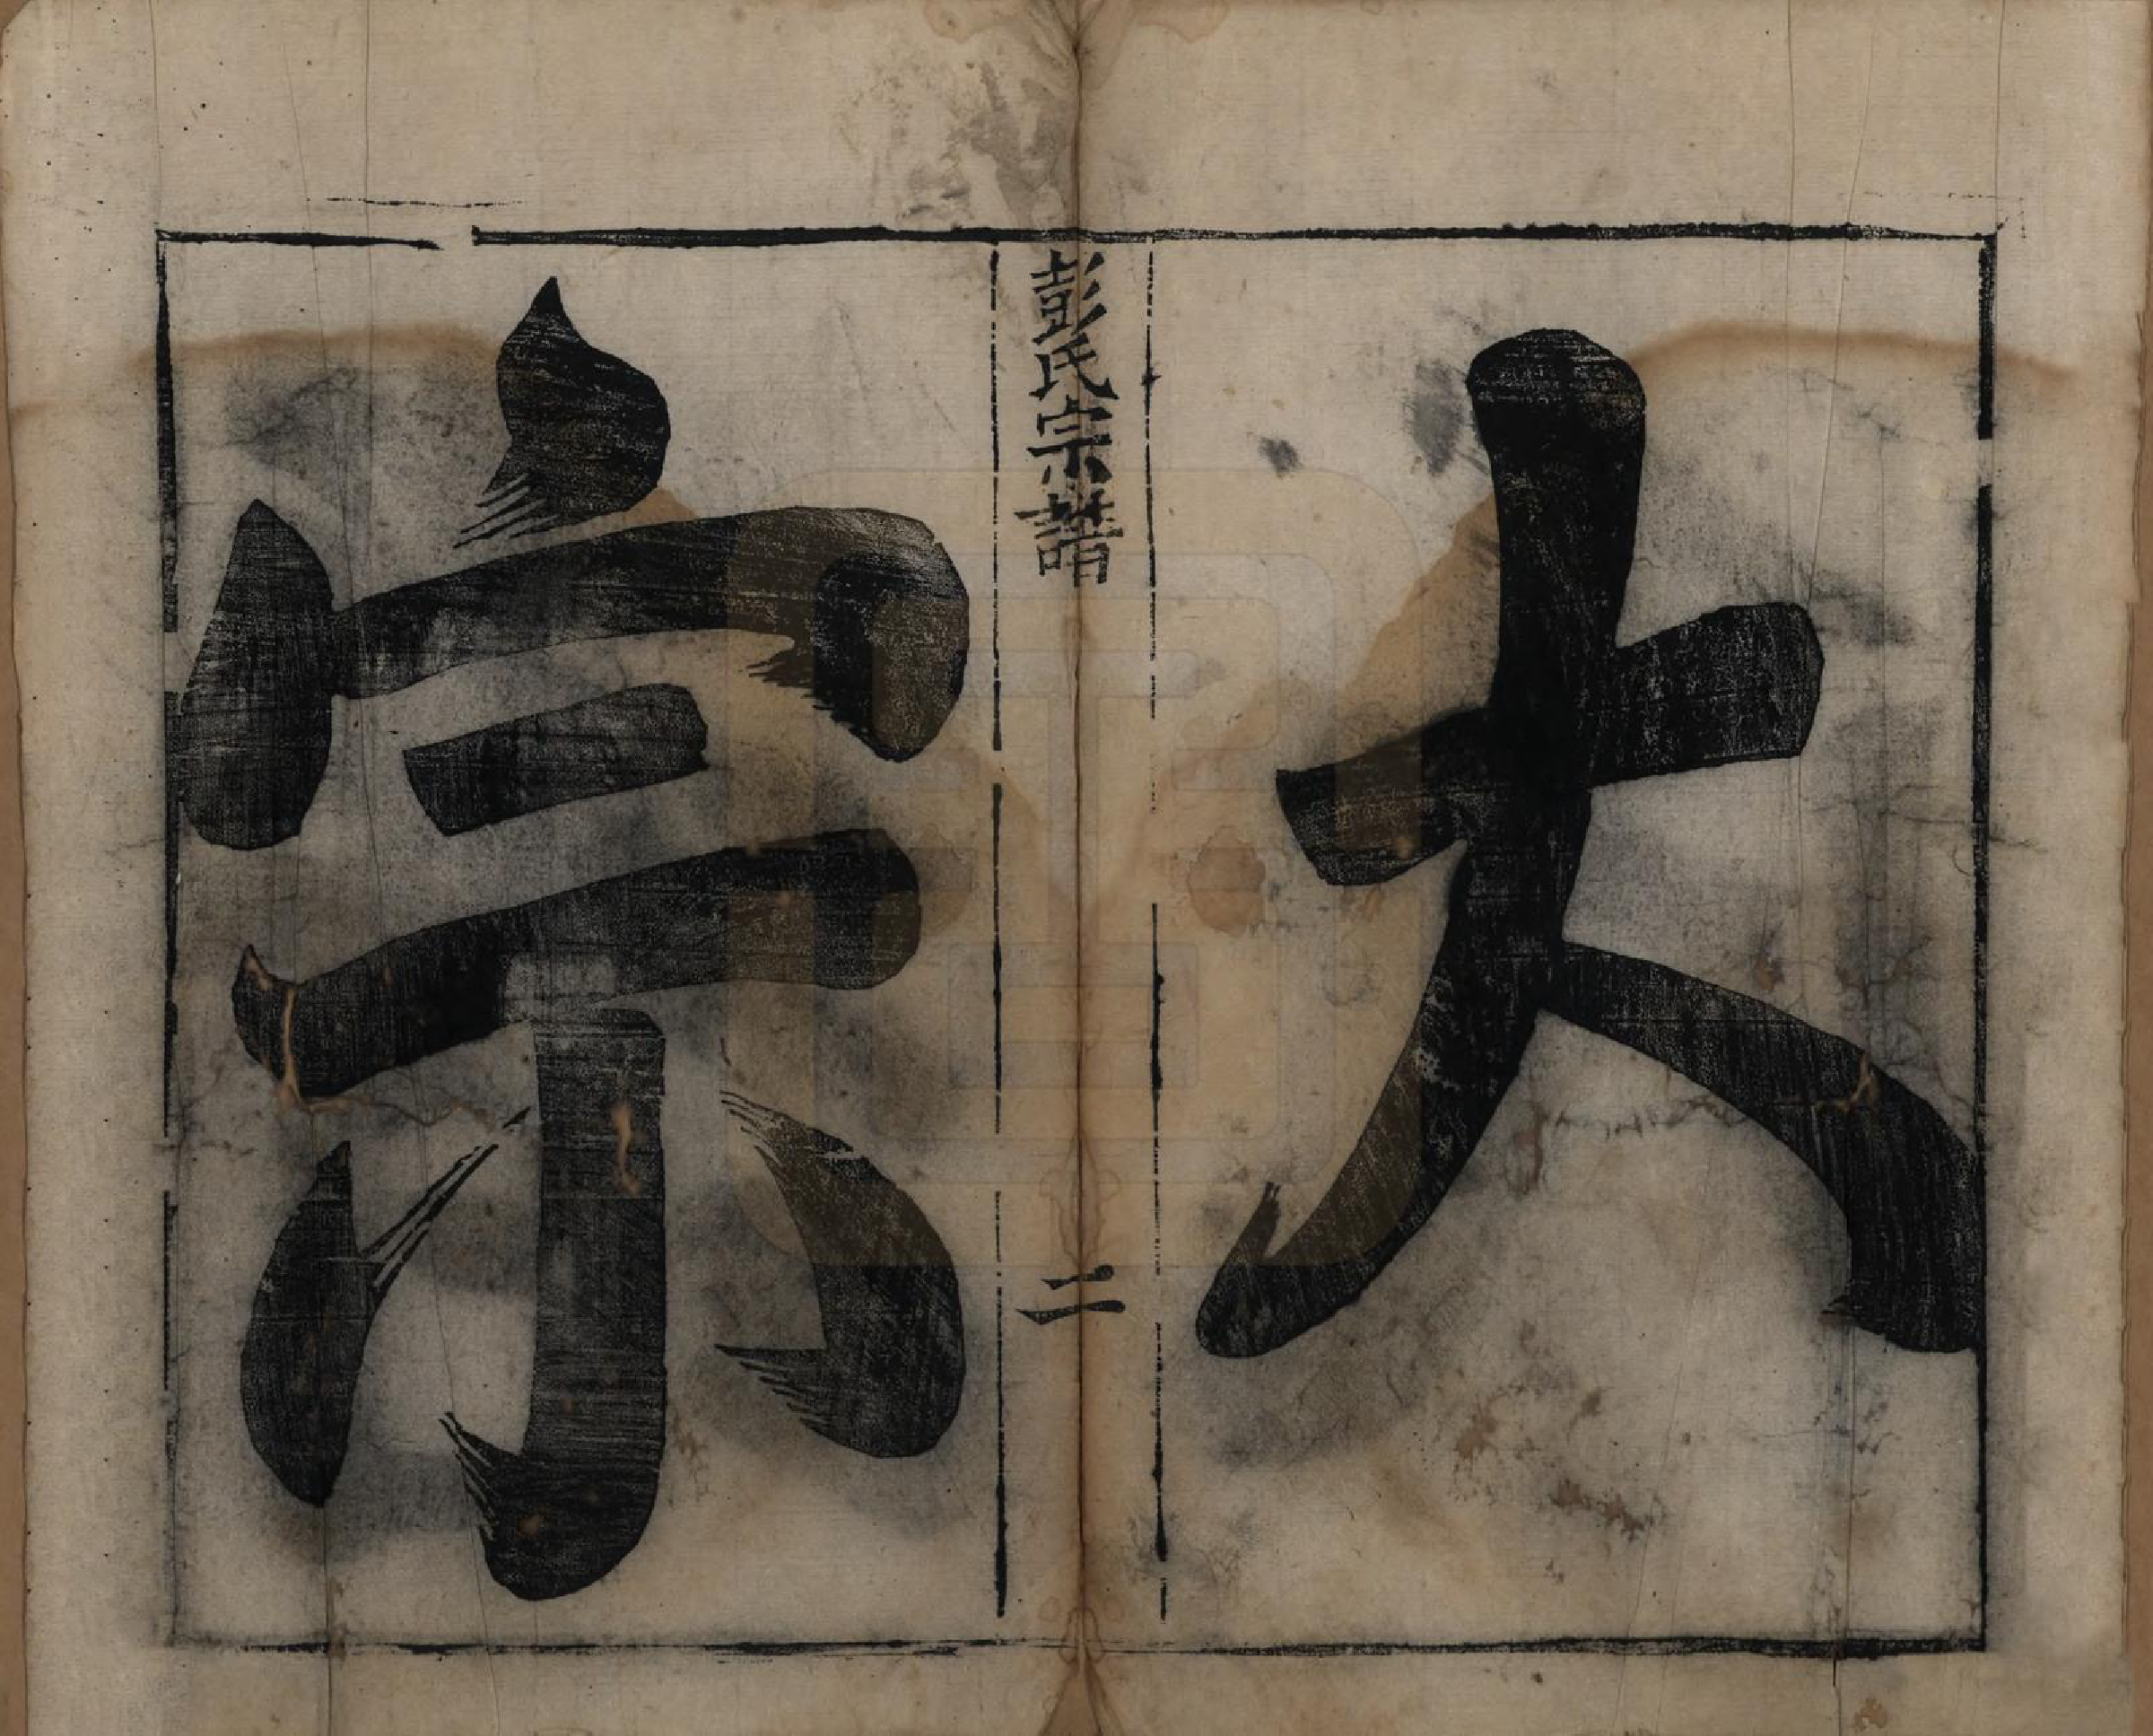 大
彭氏宗譜
二
宗